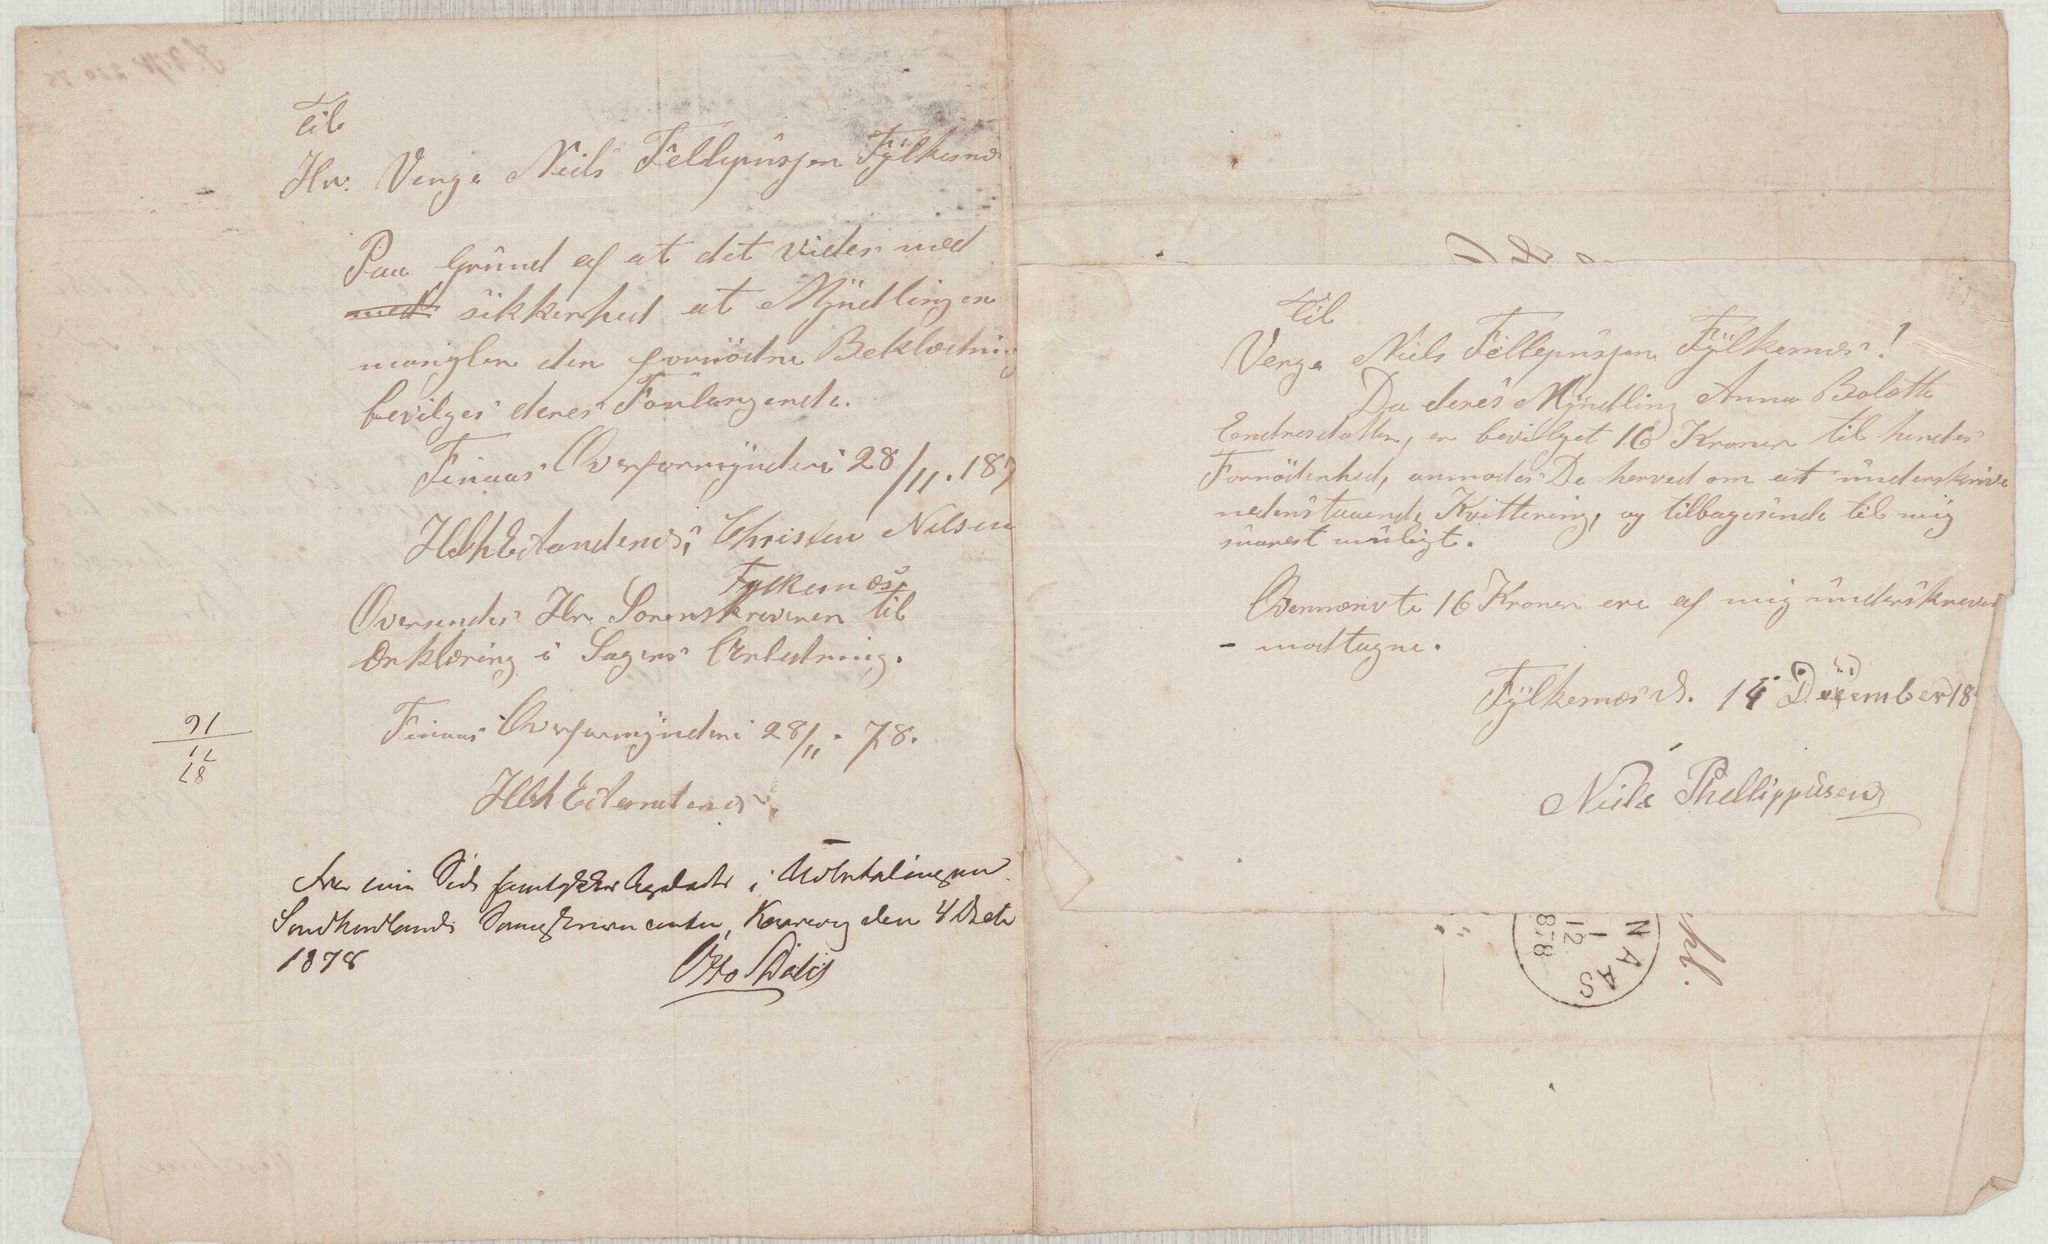 Til
Hr. Verge Neils Fellepusjen Fylkesnæs
Paa Grund af at det vides med
med sikkerhed at Myndlingen
mangler den fornödne Beklædning
bevilges deres Forlangende.
Finaas Overformynderi 28/11. 187
Christen Nilsen
Fylkesnæs
Oversendes Hr. Sorenskriveren til
Erklæring i Sagens Anledning.
Finaas Overformynderi 28/11. 78.
16
11
78
Fra min Side i Udbetalingen
Söndhordlands Sorenskriverembede, den 4 Decbr
1878
Til
Verge Niels Fellepusjen Fylkesnæs!
Da deres Myndling Anna Bolette
Endresdatter, er bevillget 16 Kroner til hendes
Fornödenhed, anmodes De herved om at underskrive
nedenstaaende Kvittering, og tilbagesende til mig
snarest muligt.
Ovennævnte 16 Kroner ere af mig underskrevne
- modtagne.
Fylkesnæs d. 14 December 18
Niels Phellippusen
NAAS
1
12
878